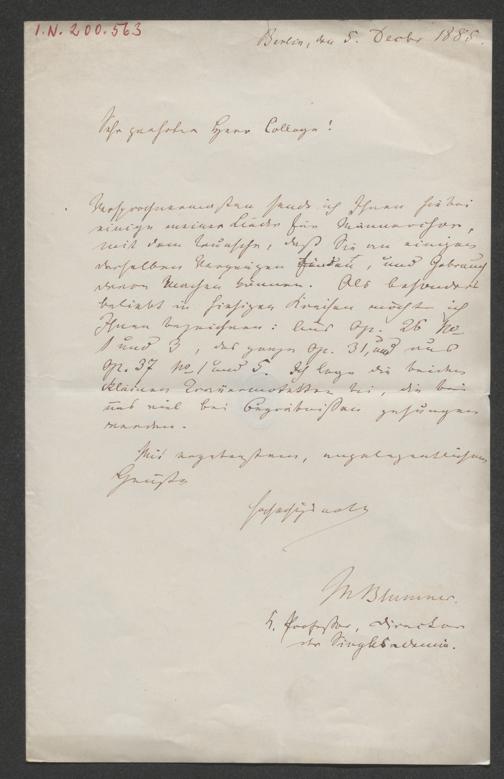 I.N. 200.563
Berlin, den 5. Decbr 1885.
Sehr geehrter Herr College!
Versprochenermaßen sende ich Ihnen hiebei
einige meiner Lieder für Männerchor,
mit dem Wunsche, daß Sie an einigen
derselben Vergnügen finden, und Gebrauch
davon machen können. Als besonders
beliebt in hiesigen Kreisen möchte ich
Ihnen bezeichnen: aus Op. 26 No
1 und 3, das ganze Op. 31, und aus
Op. 37 No 1 und 5. Ich lege die beiden
kleinen Trauermotetten bei, die bei
uns viel bei Begräbnißen gesungen
werden.
Mit ergebenstem, angelegentlichem
Gruße
hochachtungsvoll
M Blumner.
K. Professor, Director
der Singakademie.